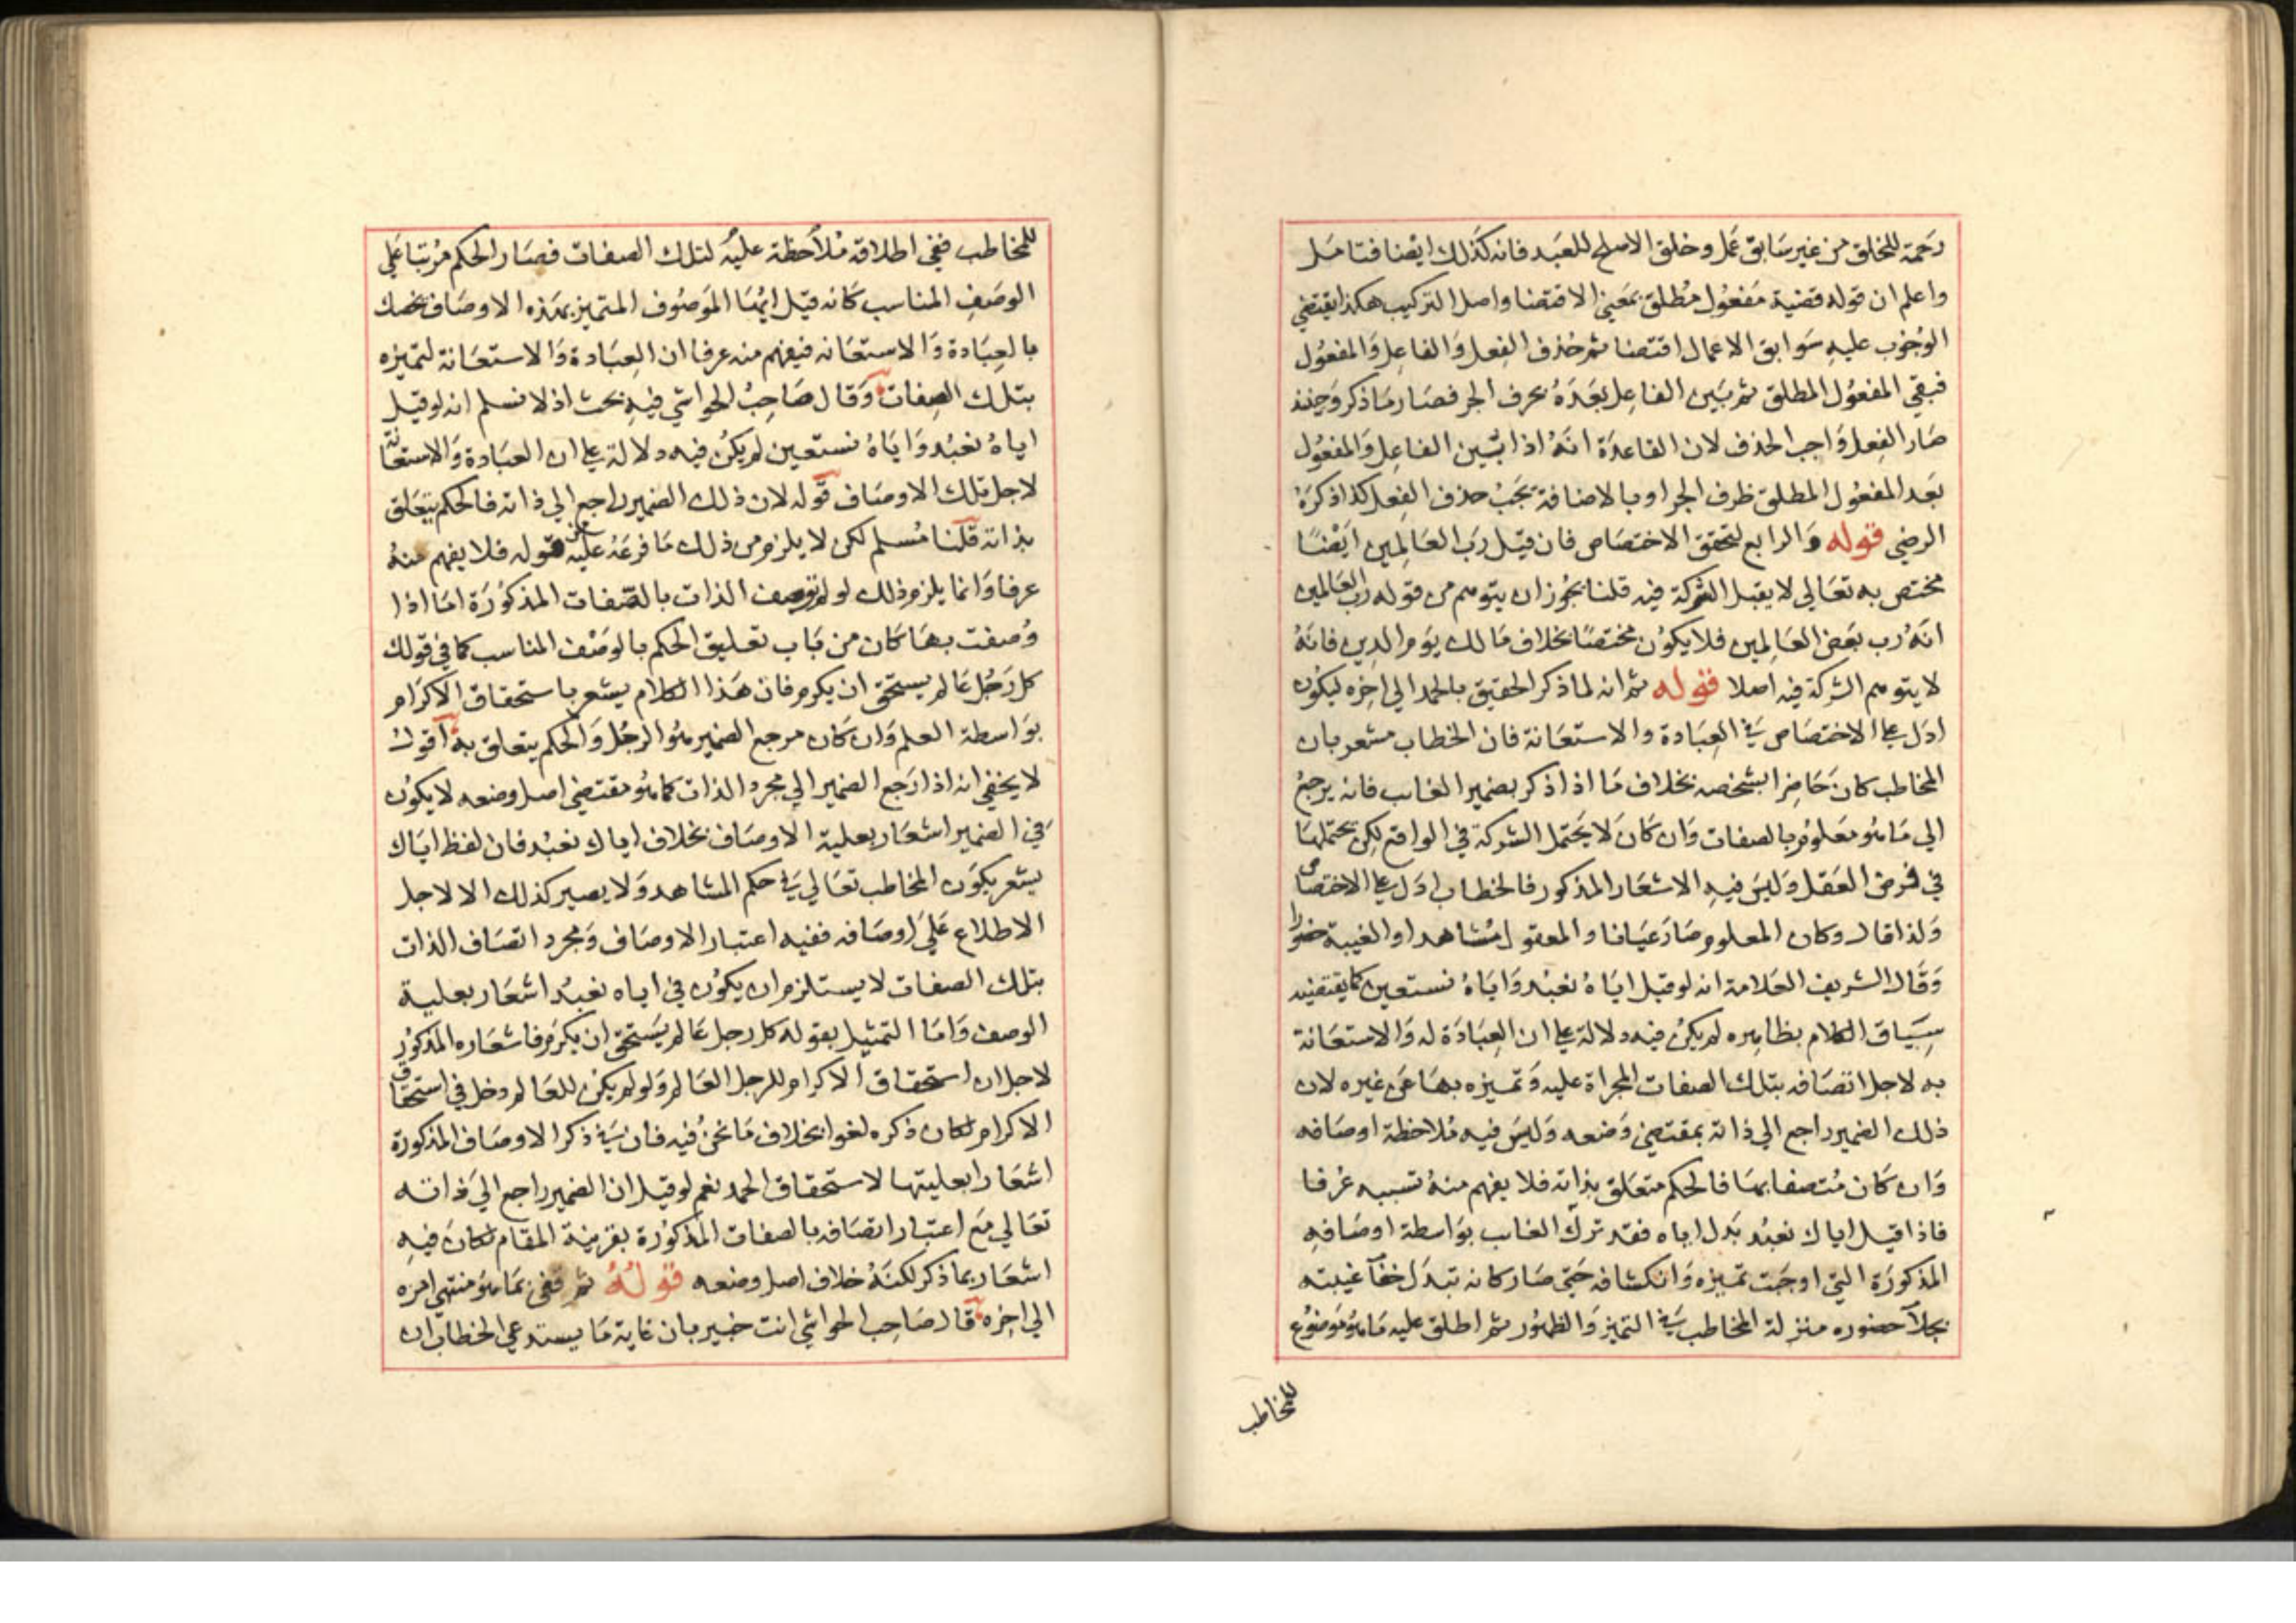 رحمة للخلق من غير سابق عمل وخلق الاصلح للعبد فانه كذلك ايضا فتامل
واعلم ان قوله قضية مفعول مطلق بمعنى الاقتضا واصل التركيب هكذا يقتضي
الوجوب عليه سوابق الاعمال اقتضا ثم حذف الفعل والفاعل والمفعول
فبقي المفعول المطلق ثم بين الفاعل بعده بحرف الجر فصار ما ذكر وحينئذ
صار الفعل واجب الحذف لان القاعدة انه اذا بين الفاعل والمفعول
بعد المفعول المطلق ظرف الجر او بالاضافة يجب حذف الفعل كذا ذكره
الرضي قوله والرابع لتحقق الاختصاص فان قيل رب العالمين ايضا
مختص به تعالي لا يقبل الشركة فيه قلنا يجوز ان يتوهم من قوله رب العالمين
انه رب بعض العالمين فلا يكون مختصا بخلاف مالك يوم الدين فانه
لا يتوهم الشركة فيه اصلا قوله ثم انه لما ذكر الحقيق بالحمد الي اخره ليكون
ادل علي الاختصاص في العبادة والاستعانة فان الخطاب مشعر بان
المخاطب كان حاضرا بشخصه بخلاف ما اذا ذكر بضمير الغائب فانه يرجع
الي ما هو معلوم بالصفات وان كان لا يحتمل الشركة في الواقع لكن يحتملها
في فرض العقل وليس فيه الاشعار المذكور فالخطاب ادل علي الاختصاص
ولذا قال وكان المعلوم صار عيانا والمعقول مشاهدا والغيبة حضورا
وقال الشريف العلامة انه لو قيل اياه نعبد واياه نستعين كما يقتضيه
سياق الكلام بظاهره لم يكن فيه دلالة علي ان العبادة له والاستعانة
به لاجل اتصافه بتلك الصفات المجراة عليه وتميزه بها عن غيره لان
ذلك الضمير راجع الي ذاته بمقتضي وضعه وليس فيه ملاحظة اوصافه
وان كان متصفا بها فالحكم متعلق بذاته فلا يفهم منه تسببه عرفا
فاذا قيل اياك نعبد بدل اياه فقد ترك الغائب بواسطة اوصافه
المذكورة التي اوجبت تميزه وانكشافه حتي صار كانه تبدل خفآ غيبته
بجلآ حضوره منزلة المخاطب في التميز والظهور ثم اطلق عليه ما هو موضوع
للمخاطب
للمخاطب ففي اطلاقه ملاحظة عليه لتلك الصفات فصار الحكم مرتبا علي
الوصف المناسب كانه قيل ايها الموصوف المتميز بهذه الاوصاف نخصك
بالعبادة والاستعانه فيفهم منه عرفا ان العبادة والاستعانة لتميزه
بتلك الصفات وقال صاحب الحواشي فيه بحث اذ لا نسلم انه لو قيل
اياه نعبد واياه نستعين لم يكن فيه دلالة علي ان العبادة والاستعانة
لاجل تلك الاوصاف قوله لان ذلك الضمير راجع الي ذاته فالحكم يتعلق
بذاته قلنا مسلم لكن لا يلزم من ذلك ما فرعه عليه من قوله فلا يفهم منه
عرفا وانما يلزم ذلك لو لم توصف الذات بالصفات المذكورة اما اذا
وصفت بها كان من باب تعليق الحكم بالوصف المناسب كما في قولك
كل رجل عالم يستحق ان يكرم فان هذا الكلام يشعر باستحقاق الاكرام
بواسطة العلم وان كان مرجع الضمير هو الرجل والحكم يتعلق به اقول
لا يخفي انه اذا رجع الضمير الي مجرد الذات كما هو مقتضي اصل وضعه لا يكون
في الضمير اشعار بعلية الاوصاف بخلاف اياك نعبد فان لفظ اياك
يشعر بكون المخاطب تعالي في حكم المشاهد ولا يصير كذلك الا لاجل
الاطلاع علي اوصافه ففيه اعتبار الاوصاف ومجرد اتصاف الذات
بتلك الصفات لا يستلزم ان يكون في اياه نعبد اشعار بعلية
الوصف واما التمثيل بقوله كل رجل عالم يستحق ان يكرم فاشعاره المذكور
لاجل ان استحقاق الاكرام للرجل العالم ولو لم يكن للعالم دخل في استحقاق
الاكرام لكان ذكره لغوا بخلاف ما نحن فيه فان في ذكر الاوصاف المذكورة
اشعارا بعليتها لاستحقاق الحمد نعم لو قيل ان الضمير راجع الي ذاته
تعالي مع اعتبار اتصافه بالصفات المذكورة بقرينة المقام لكان فيه
اشعار بما ذكر لكنه خلاف اصل وضعه قوله ثم قفي بما هو منتهي امره
الي اخره قال صاحب الحواشي انت خبير بان غاية ما يستدعي الخطاب ان